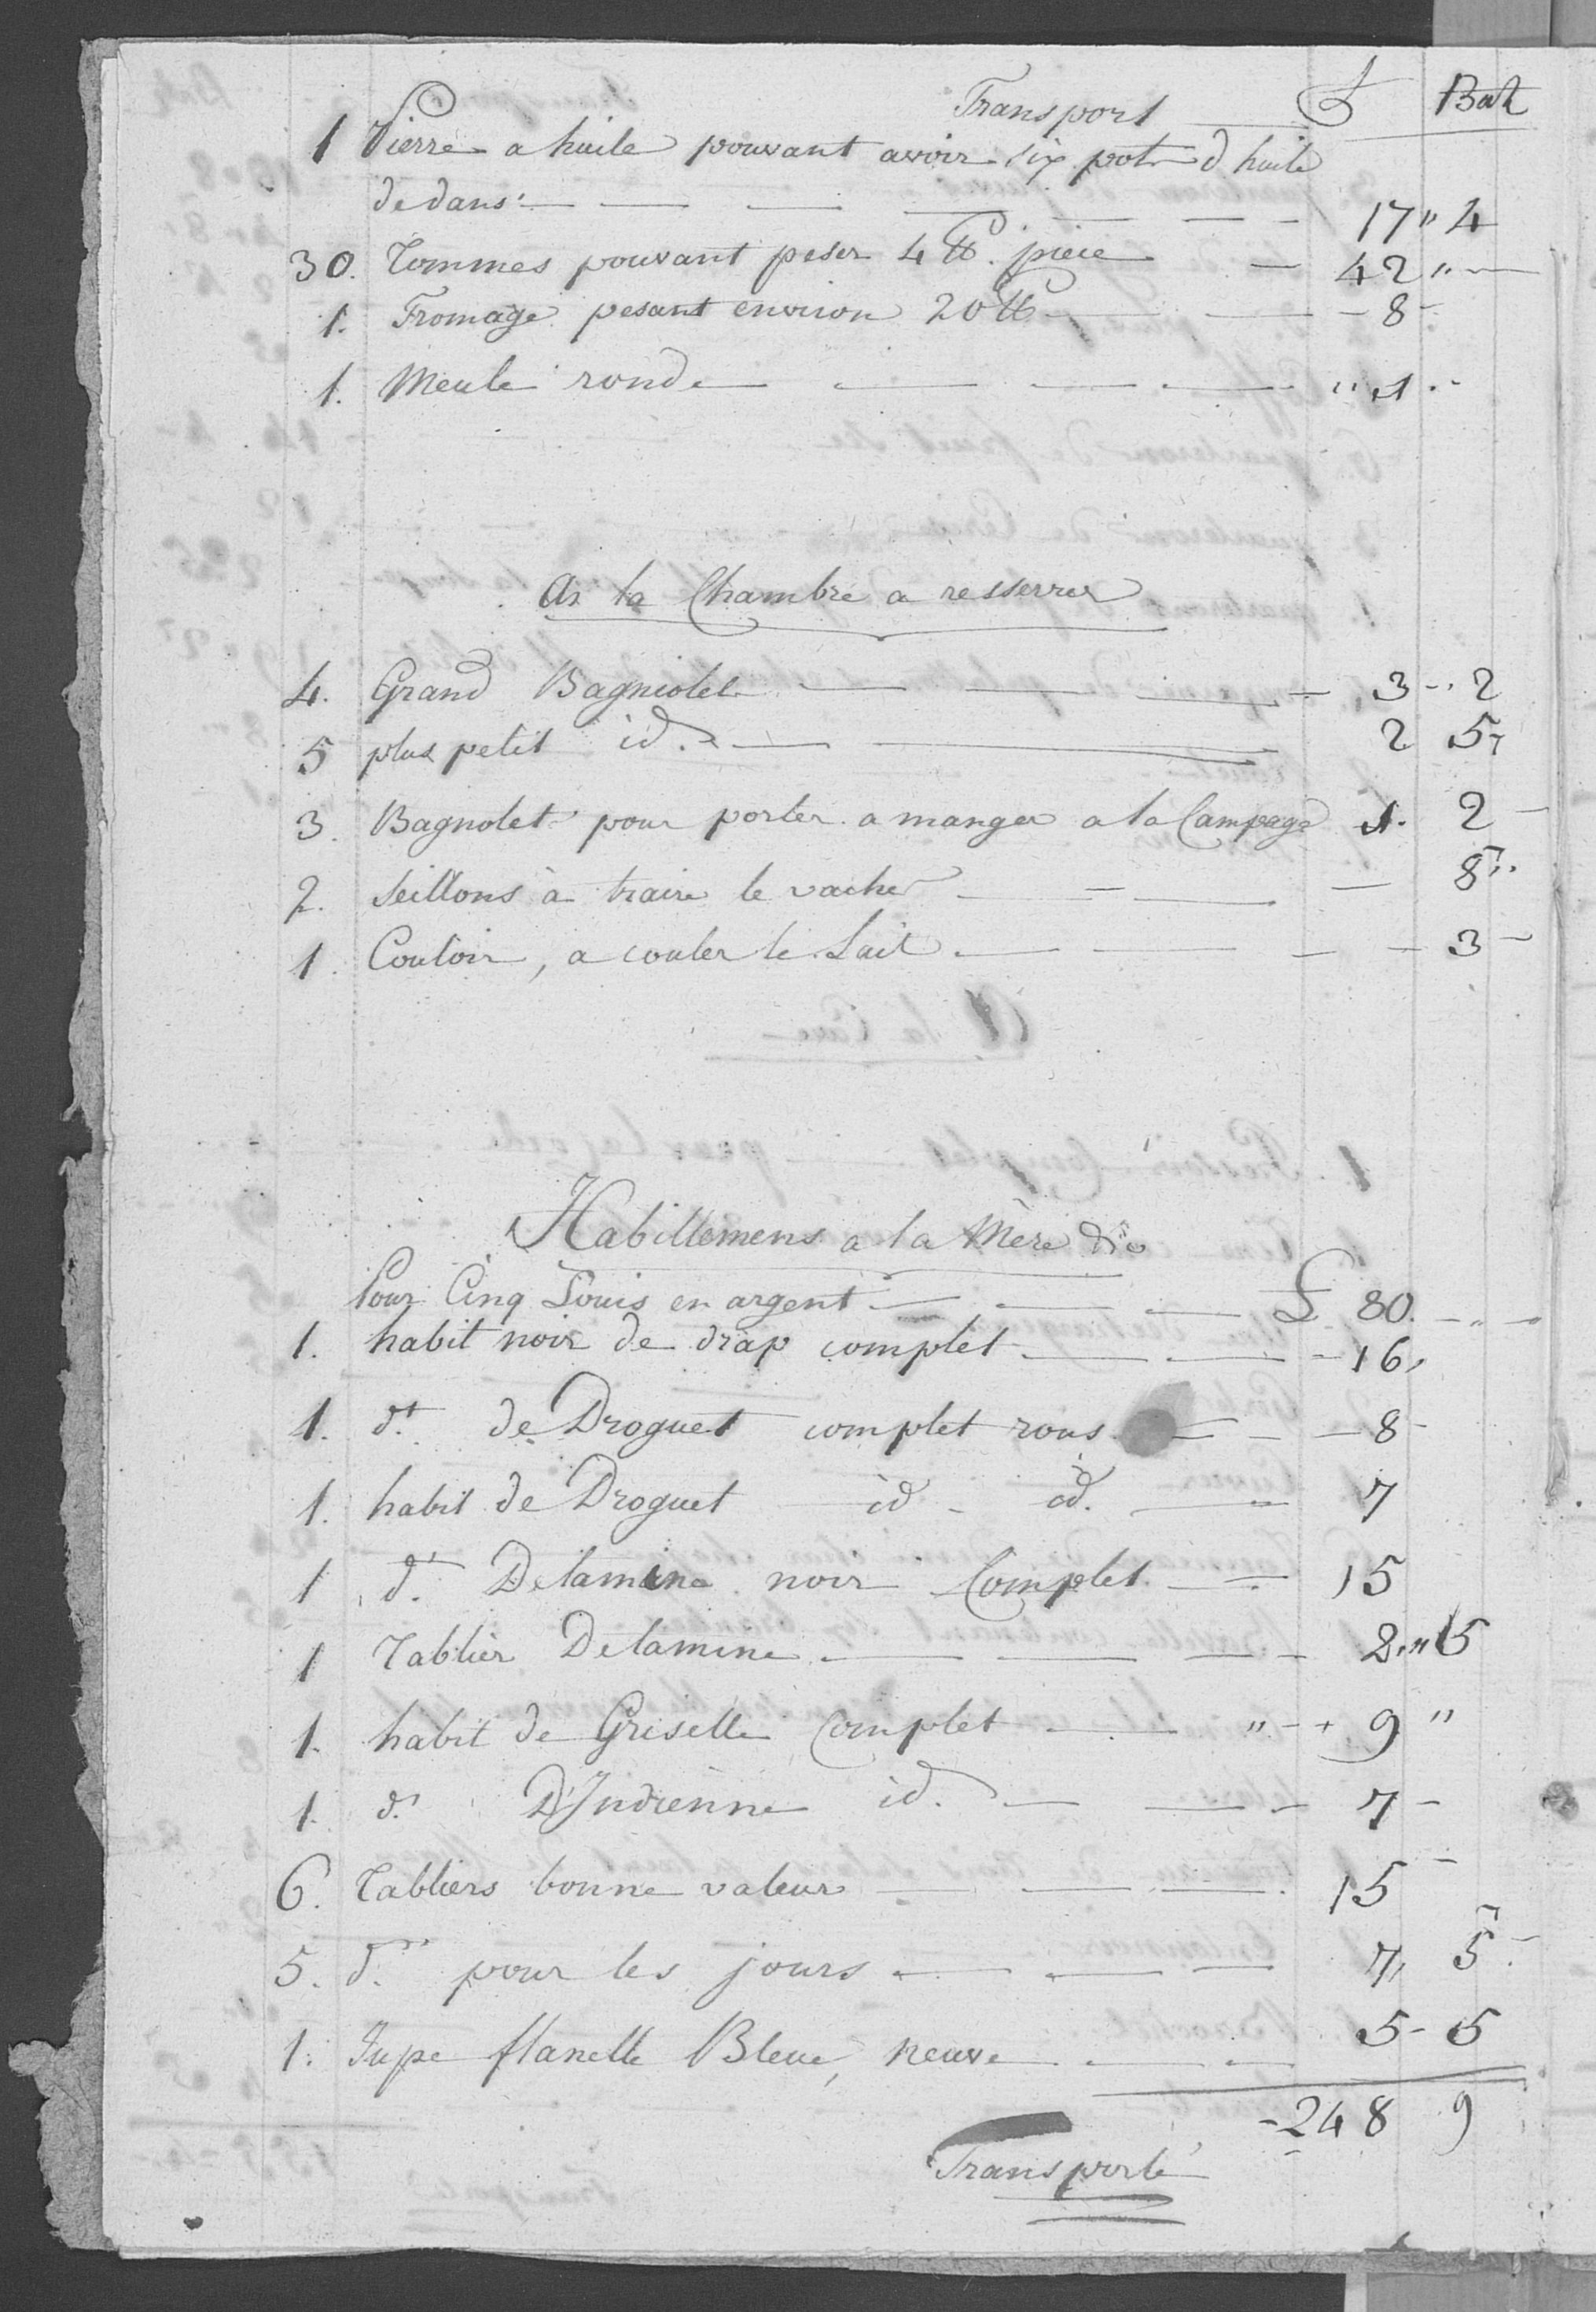 Transport £ Batz
1 Pierre a huile pouvant avoir six pots d huile
dedans 17 " 4
30. Tommes pouvant peser 4 ℔. piece 42 "
1. Fromage pesant environ 20 ℔ 8
1. Meule ronde " 1
A la Chambre a resserrer
4. Grand Bagniolet 3 - 2
5 plus petit id. 2 5
3. Bagnolet pour porter a manger a la Campage 1. 2
2. Seillons à traire le vache 8
1. Couloir, a couler le Lait 3
Habillemens a la Mère
Pour Cinq Louis en argent £ 80.
1. habit noir de drap complet 16,
1. dt. de Droguet complet rous 8
1. habit de Droguet id id. 7
1 dt. Detamine noir Complet 15
1 Tablier Detamine 2 " 15
1. habit de Griselle Complet " 9 "
1. dt. D'Indienne id. 7
6. Tabliers bonne valeur 15
5. dt. pour les jours 7, 5
1. Jupe flanelle Bleue, neuve 5 - 5
248 9
Transporté